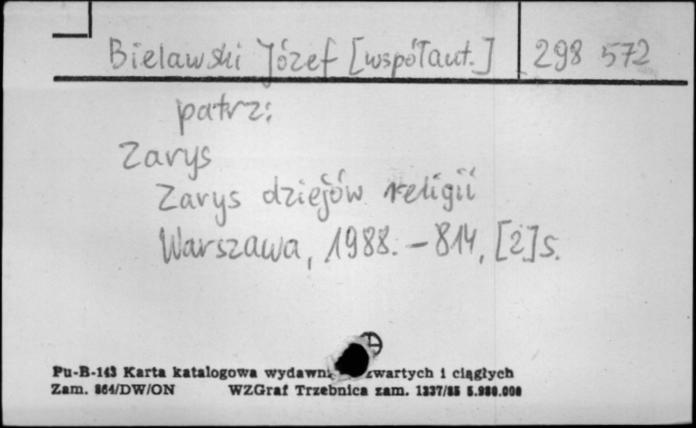 Bielawski Józef [współaut.] 298 572
patrz:
Zarys
Zarys dziejów religii
Warszawa, 1988. - 814, [2] s.
Pu-B-143 Karta katalogowa wydawn zwartych i ciągłych
Zam. 864/DW/ON WZGraf Trzebnica zam. 1337/85 5.980.000